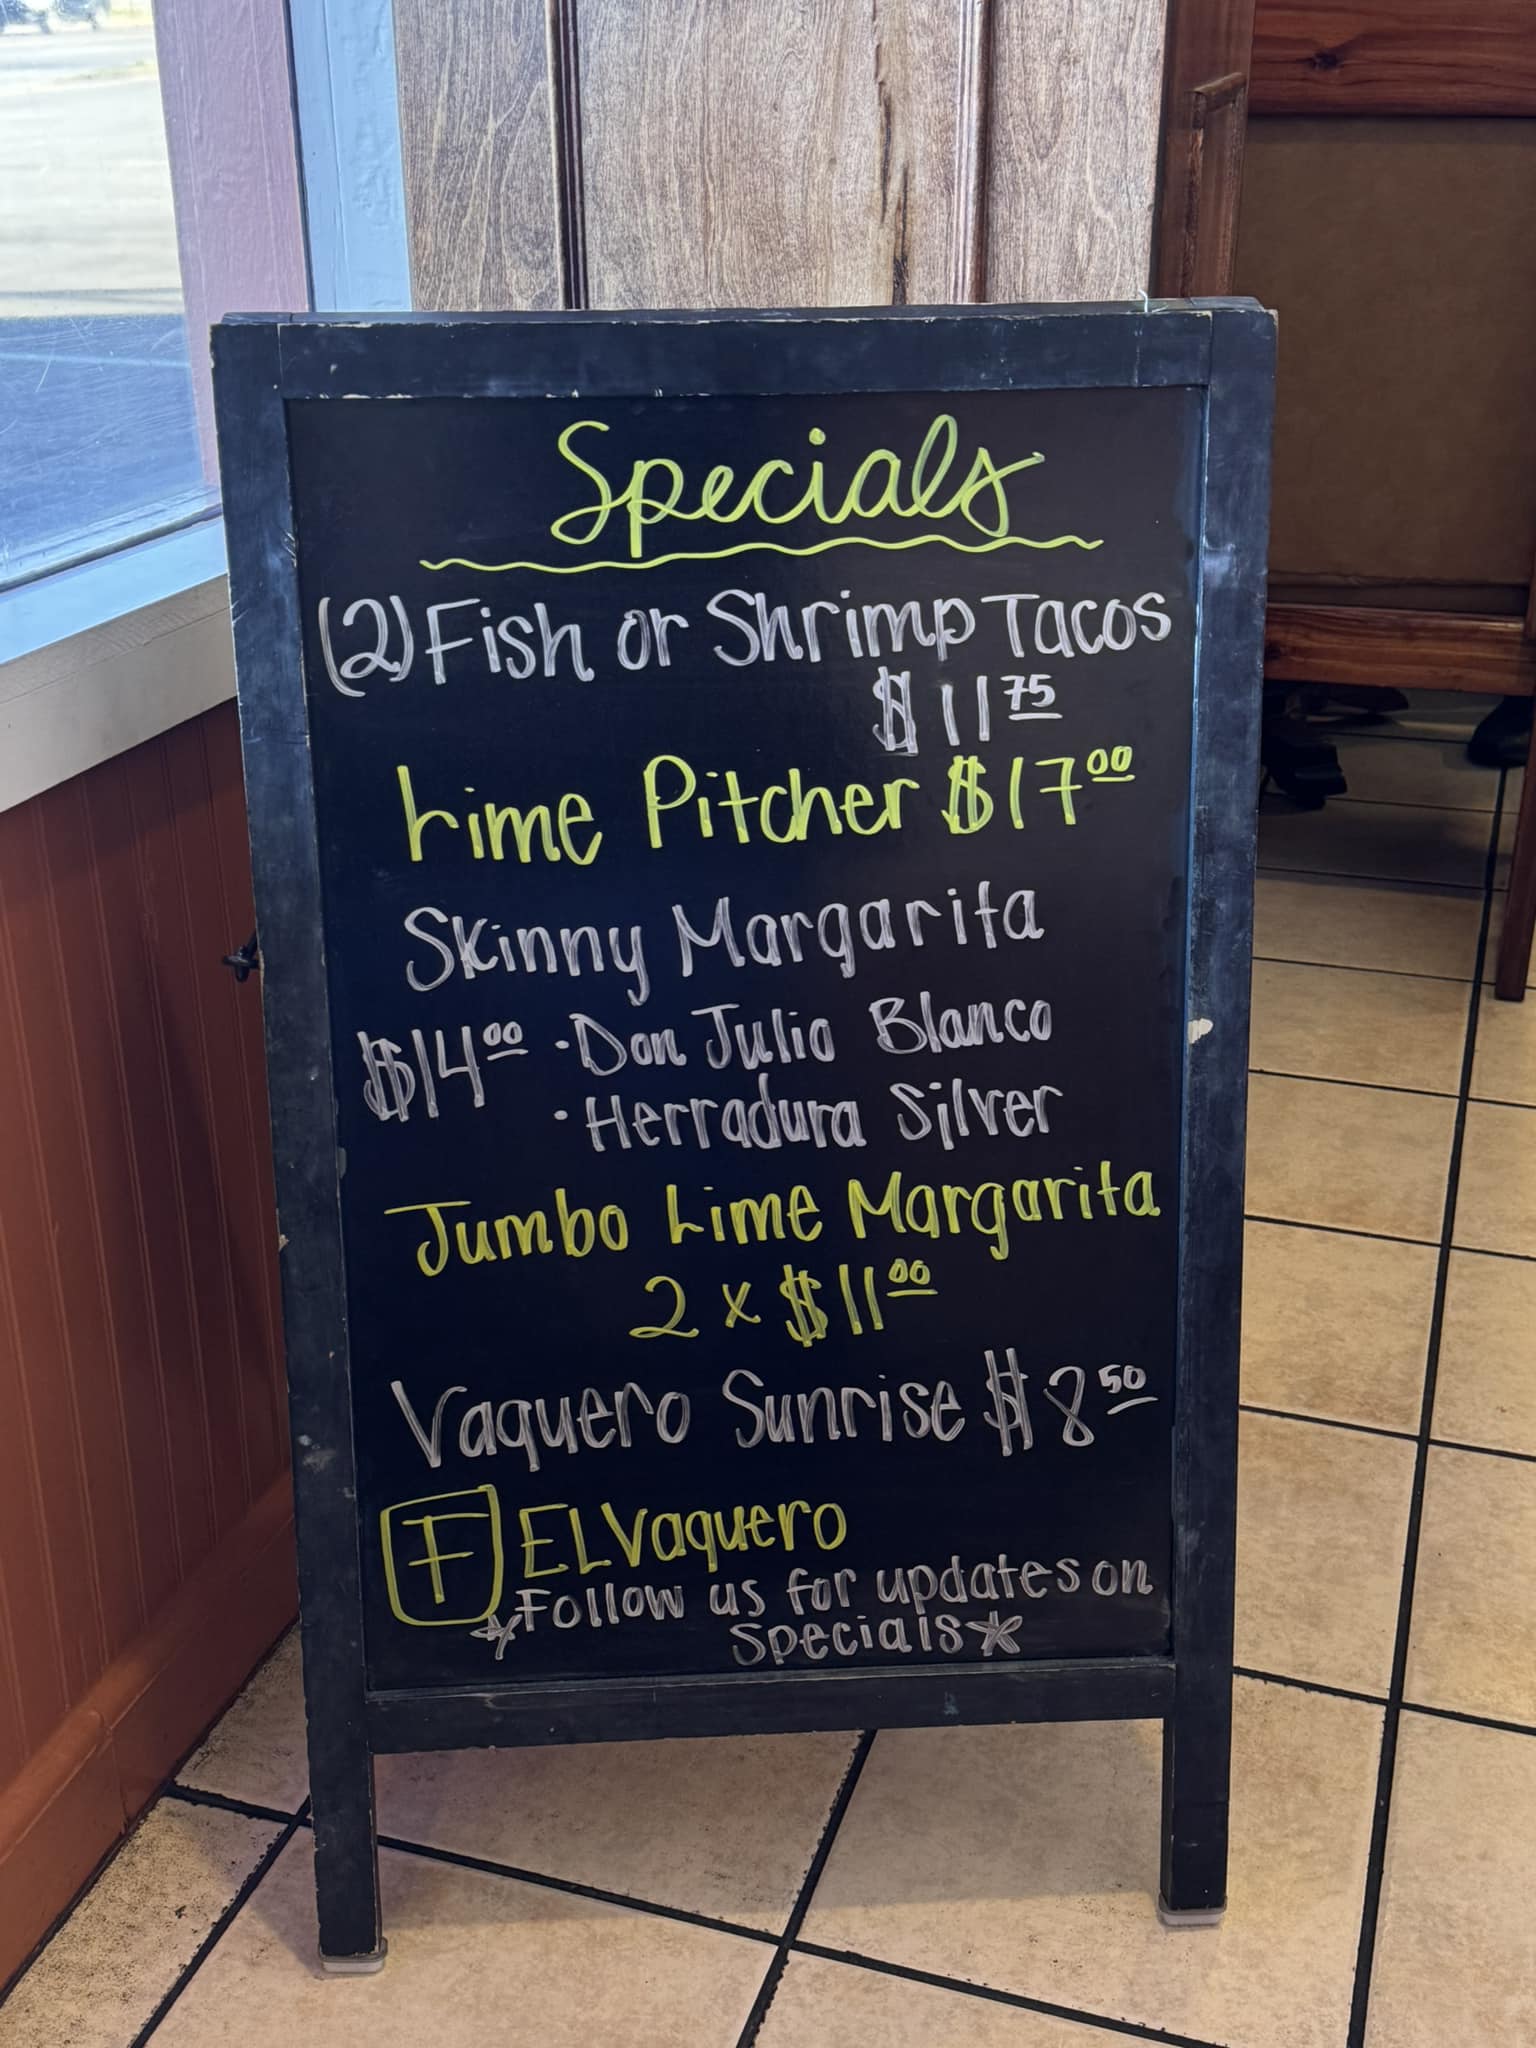 Specials
(2) Fish or Shrimp Tacos
$11 75
Lime Pitcher $17 00
Skinny Margarita
$14 00 · Don Julio Blanco
· Herradura Silver
Jumbo Lime Margarita
2 x $11 00
Vaquero Sunrise $8 50
F EL Vaquero
*Follow us for updates on
specials*